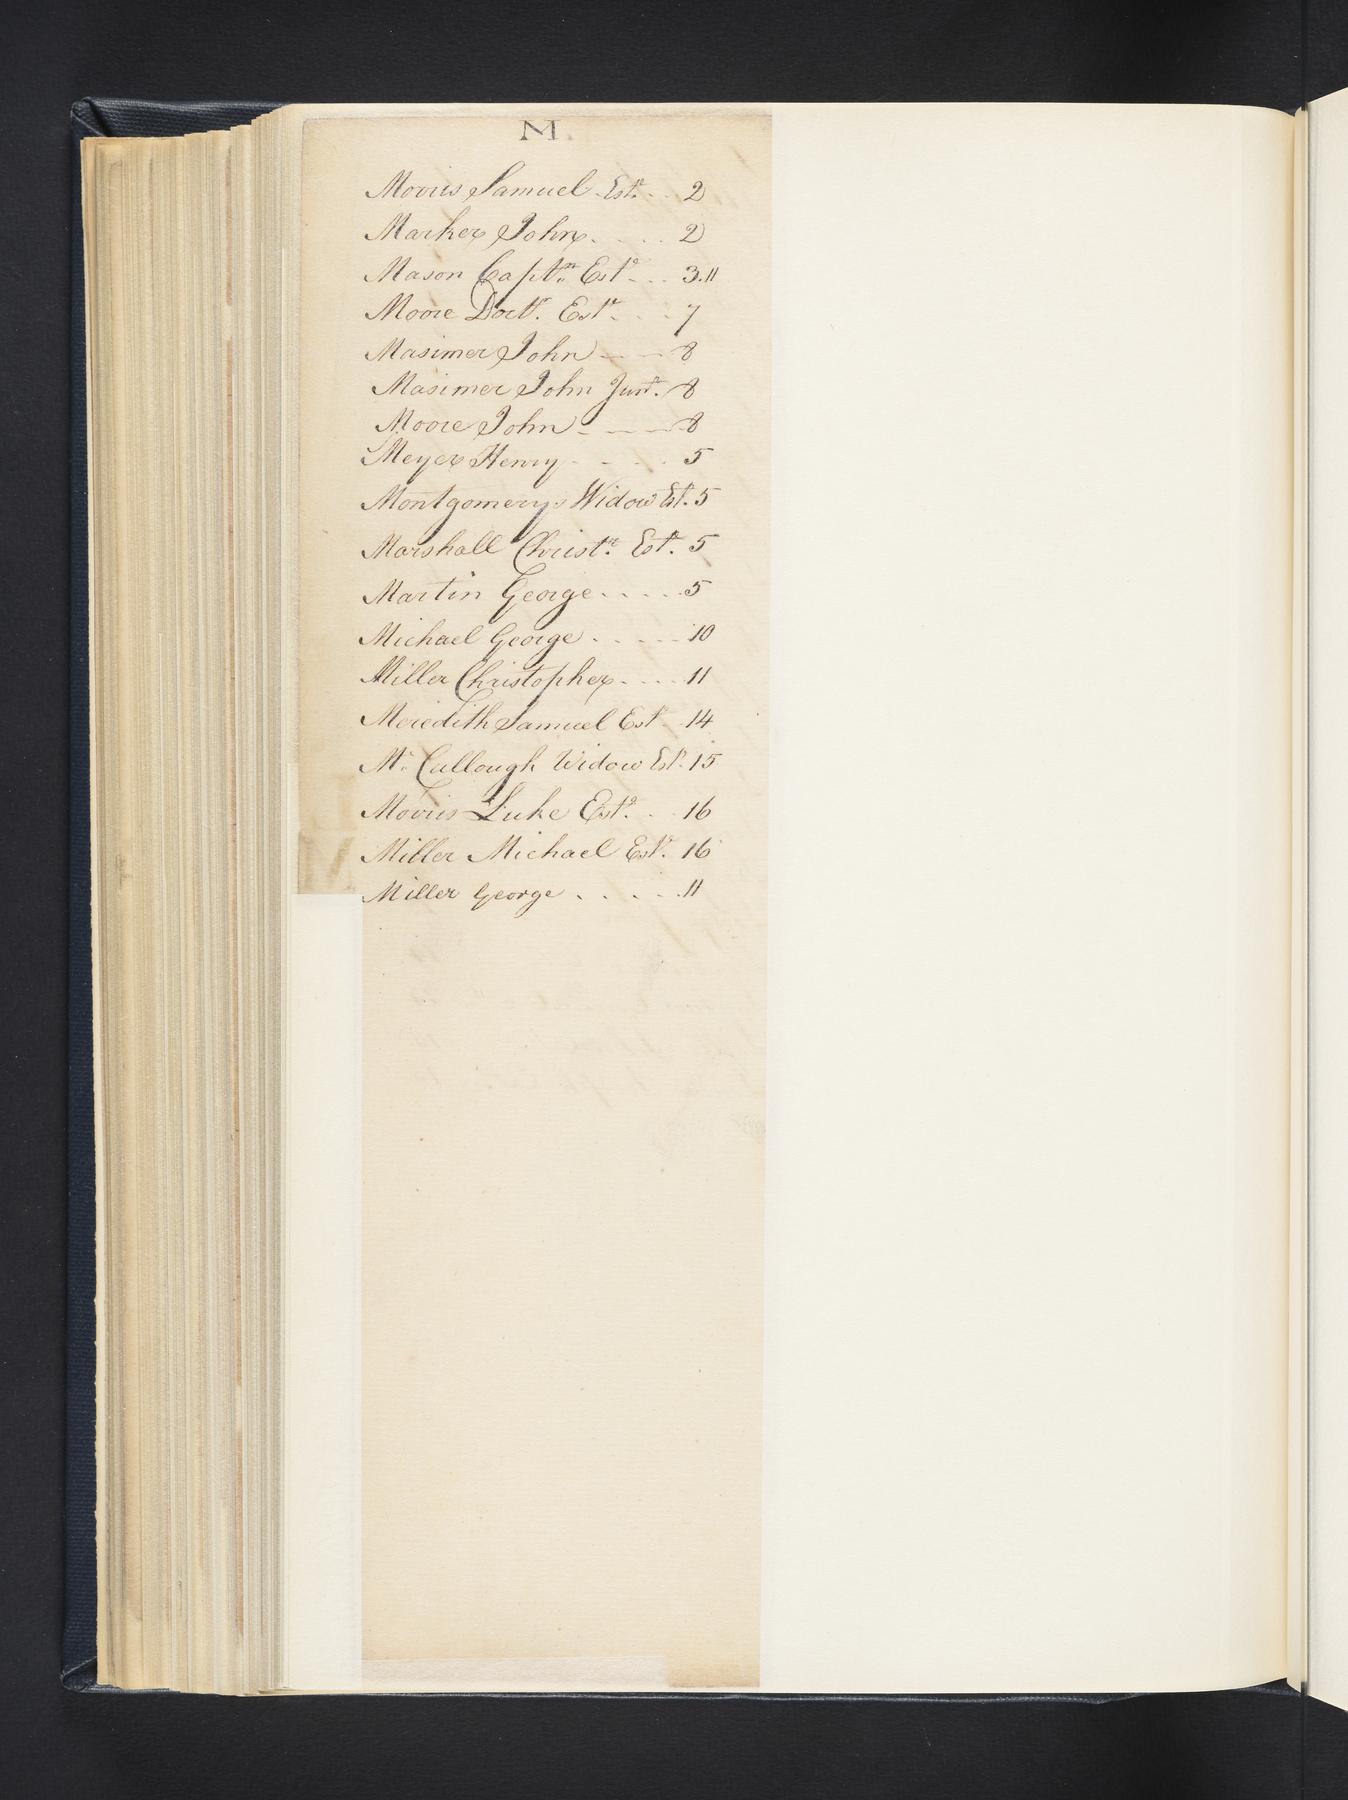 M.
Morris Samuel Estr. 2
Marker John 2
Mason Captn. Este. 3.11
Moore Doctr. Este. 7
Masimer John 8
Masimer John Junr. 8
Moore John 8
Meyer Henry 5
Montgomerys Widow Est. 5
Marshall Christr. Estr. 5
Martin George 5
Michael George 10
Miller Christopher 11
Meredith Samuel Este 14
Mc. Cullough Widow Este. 15
Morris Luke Este. 16
Miller Michael Este. 16
Miller George 11